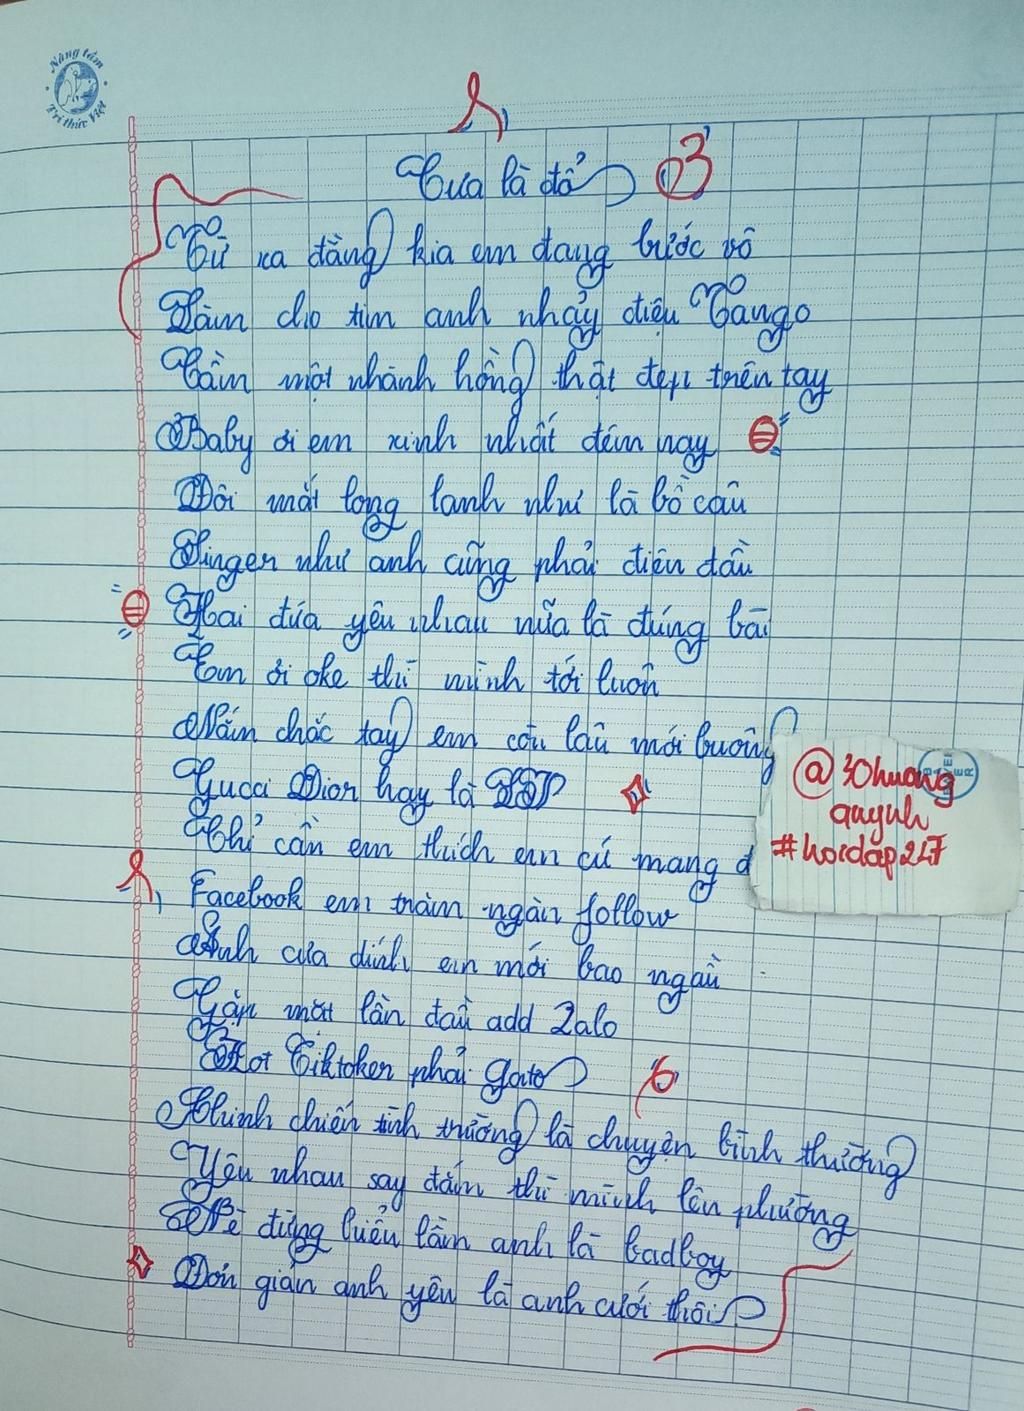 Nâng tầm
Trí thức Việt
Cưa là đổ
Từ xa đằng kia em đang bước vô
Làm cho tim anh nhảy điệu Tango
Cầm một nhành hồng thật đẹp trên tay
Baby ơi em xinh nhất đêm nay
Đôi mắt long lanh như là bồ câu
Singer như anh cũng phải điên đầu
Hai đứa yêu nhau nữa là đúng bài
Em ơi oke thì mình tới luôn
Nắm chắc tay em còn lâu mới buông
Gucci Dior hay là
Chỉ cần em thích em cứ mang đ
Facebook em trăm ngàn follow
Anh cưa dính em mới bao ngầu
Gặp mặt lần đầu add Zalo
Hot Tiktoker phải gato
Chinh chiến tình trường là chuyện bình thường
Yêu nhau say đắm thì mình lên phường
Bé đừng hiểu lầm anh là badboy
Đơn giản anh yêu là anh cưới thôi
@30huong
quynh
#hoidap247